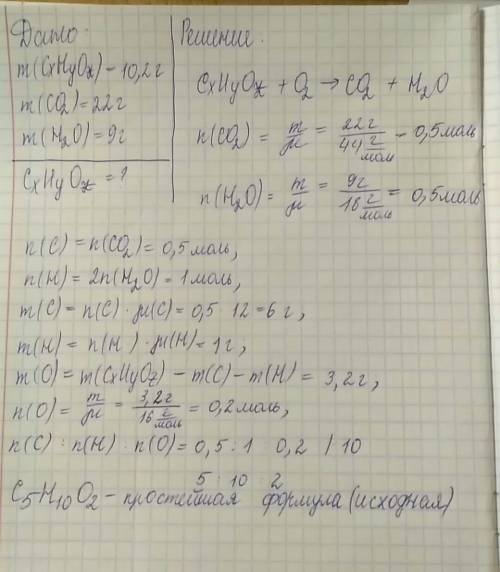 Дано:
m(CxHyOz) - 10,2г
m(CO2) = 22г
m(H2O) = 9г
CxHyOz = ?
Решение:
CxHyOz + O2 → CO2 + H2O
n(CO2) = m/μ = 22г/44 г/моль - 0,5 моль
n(H2O) = m/μ = 9г/18 г/моль = 0,5 моль
n(C) = n(CO2) = 0,5 моль,
n(H) = 2n(H2O) = 1 моль,
m(C) = n(C) · μ(C) = 0,5 12 = 6 г,
m(H) = n(H) · μ(H) = 1г,
m(O) = m(CxHyOz) - m(C) - m(H) = 3,2г,
n(O) = m/μ = 3,2г/16 г/моль = 0,2 моль,
n(C) : n(H) · n(O) = 0,5 : 1 0,2 / 10
5 : 10 2
C5H10O2 - простейшая формула (исходная)